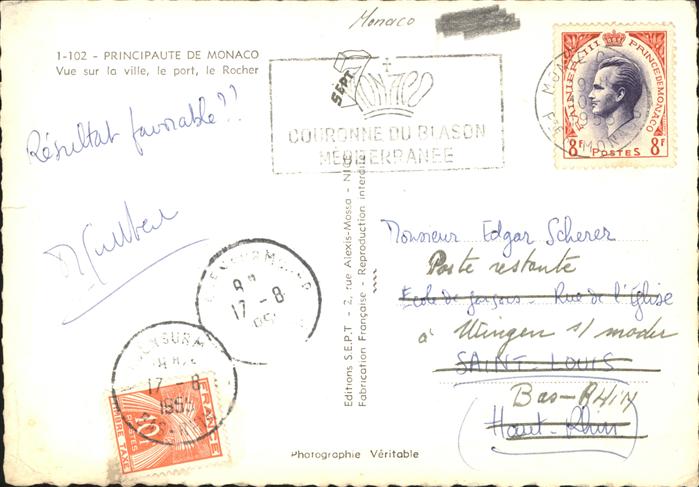 Monaco
1-102 - PRINCIPAUTE DE MONACO
Vue sur la ville, le port, le Rocher
Résultat favorable??
SEPT
MONACO
COURONNE DU BLASON
MÉDITERRANÉE
RAINIER III PRINCE DE MONACO
8F POSTES 8F
Editions S.E.P.T - 2, rue Alexis-Mossa - NICE
Fabrication Française - Reproduction interdite
Monsieur Edgar Scherer
Poste restante
Ecole de garçons - Rue de l'Église
à Wingen s/ moder
SAINT-LOUIS
Bas-RHIN
Haut-Rhin
17 - 8
17 - 8
1955
FRANCE
10F
POSTES
Photographie Véritable